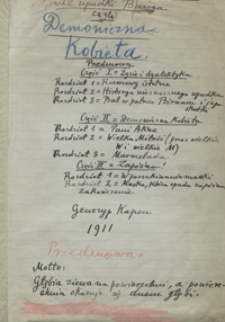 622 upadki Bunga
czyli
Demoniczna
Kobieta.
Przedmowa
Część I = Życie i dyalektyka
Rozdział 1 = Rozmowy istotne
Rozdział 2 = Historya nieznacznego upadku
Rozdział 3 = Bal w pałacu Birnam i jego
skutki
Część II = Demoniczna Kobieta
Rozdział 1 = Pani Akne
Rozdział 2 = Wielka Miłość (przez wielkie
W. i wielkie M)
Rozdział 3 = Marmolada
Część III = Zapóźno!
Rozdział 1 = W poszukiwaniu maski
Rozdział 2 = Maska, która spada zapóźno
Zakończenie.
Genezyp Kapen
1911
Przedmowa.
Motto:
Głębia ziewa na powierzchni, a powierz-
chnia okazuje się dnem głębi.